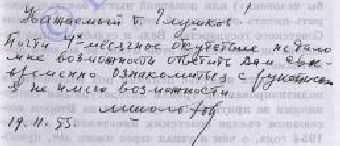 Уважаемый т. Глушков.
Почти 4х-месячное отсутствие не дало
мне возможности ответить Вам. Свое-
временно ознакомиться с рукописью
я не имел возможности.
М. Шолохов
19.11.55.